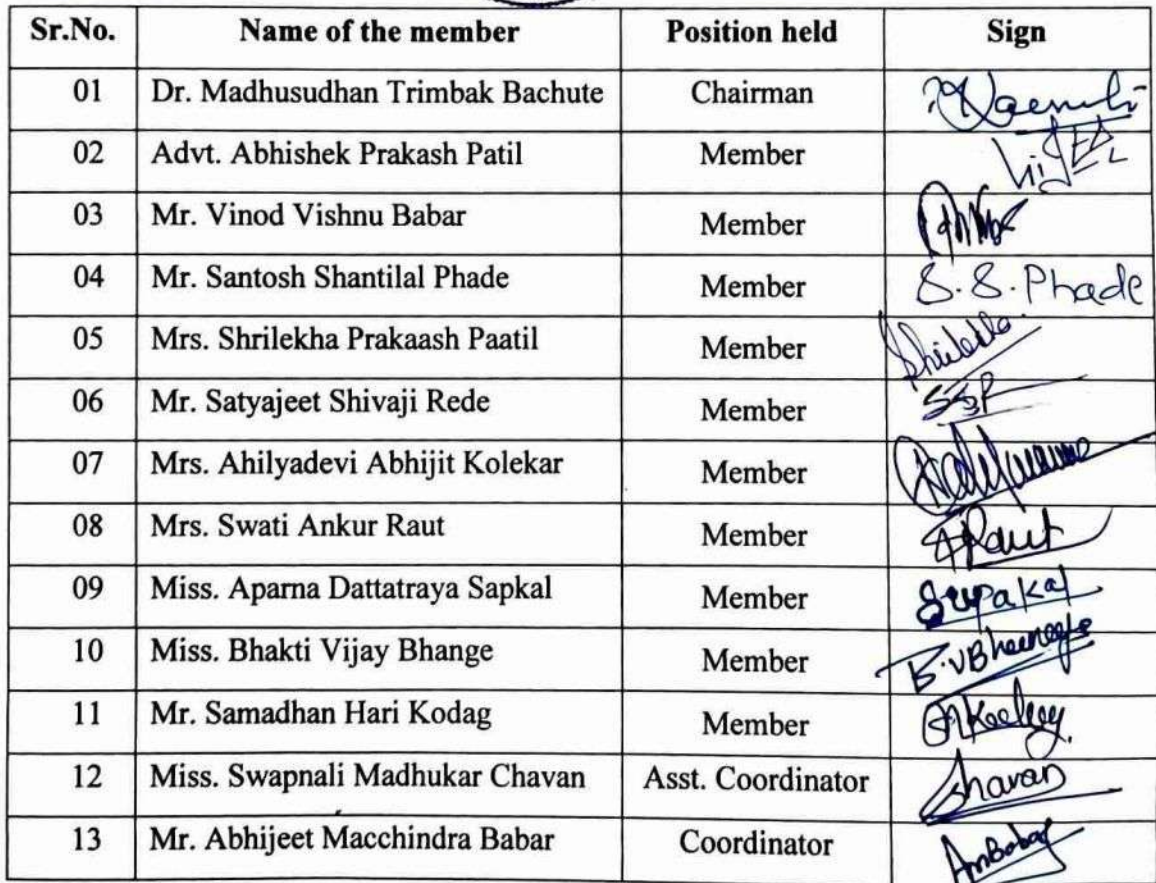 Sr.No. Name of the member Position held Sign
01 Dr. Madhusudhan Trimbak Bachute Chairman
02 Advt. Abhishek Prakash Patil Member
03 Mr. Vinod Vishnu Babar Member
04 Mr. Santosh Shantilal Phade Member S.S.Phade
05 Mrs. Shrilekha Prakaash Paatil Member
06 Mr. Satyajeet Shivaji Rede Member SSR
07 Mrs. Ahilyadevi Abhijit Kolekar Member
08 Mrs. Swati Ankur Raut Member Raut
09 Miss. Aparna Dattatraya Sapkal Member
10 Miss. Bhakti Vijay Bhange Member
11 Mr. Samadhan Hari Kodag Member
12 Miss. Swapnali Madhukar Chavan Asst. Coordinator
13 Mr. Abhijeet Macchindra Babar Coordinator